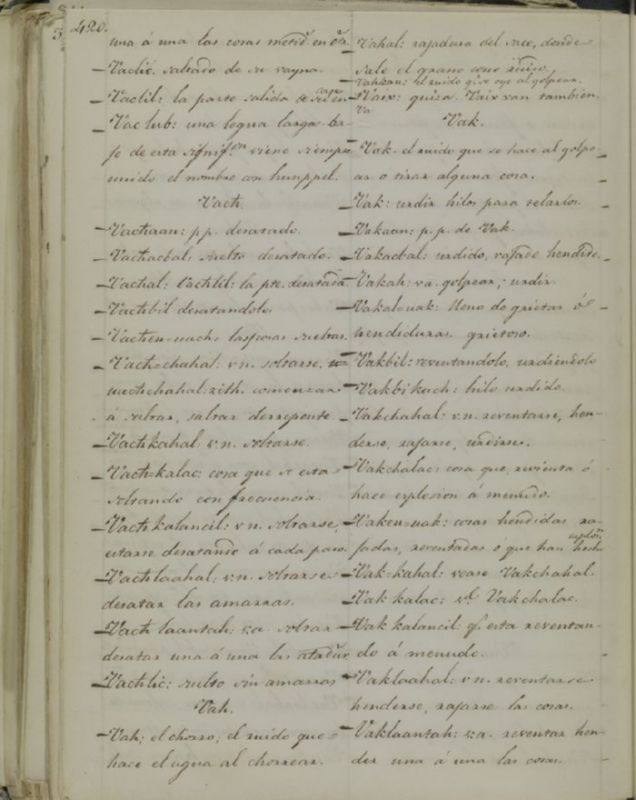 420.
una á una las cosas metid.s en otra
Vaclic. saltado de su vayna.
Vaclil: la parte salida de su en-
caje
Vac lub: una legua larga.
so de esta signif.on viene siempre
unido el nombre con huppel.
Vach
Vachaan: p.p. desatado.
Vachacbal: suelto desatado.
Vachal: Vachlil: la pte. desatada
Vachbil desatandolo.
Vachen-uach: las cosas sueltas.
Vach-chahal: v.n. soltarse,
uachchahal. comenzar
á soltar, saltar derrepente.
Vachkahal v.n. soltarse.
Vach-kalac: cosa que se esta
soltando con frecuencia.
Vach kalancil: v.n. soltarse,
estarse desatando á cada paso.
Vachlaahal: v.n. soltarse
desatar las amarras.
Vach laantah: v.a. soltar
desatar una á una las atadur.s
Vachlic: suelto sin amarras
Vah.
Vah; el chorro; el ruido que
hace el agua al chorrear.
Vahal: rajadura del saco, donde
sale el grano como
Vahkan: el ruido q.e se oye al golpear.
Vaix: quiza. Vaix van tambien.
Vak.
Vak. el ruido que se hace al golpe-
ar o tirar alguna cosa.
Vak: urdir hilos para telarlos.
Vakaan: p.p. de Vak.
Vakacbal: urdido, rajado hendido.
Vakah: v.a. golpear; urdir.
Vakal-uak: lleno de grietas ó
hendiduras. grietoso.
Vakbil: reventandolo, urdiendolo
Vakbi kuch: hilo urdido.
Vakchahal: v.n. reventarse, hen-
derse, rajarse, urdirse.
Vakchalac: cosa que revienta ó
hace esplosion á menudo.
Vaken-uak: cosas hendidas ra-
esplos.n
jadas, reventadas ó que han hecho
Vak-kahal: vease Vakchahal.
Vak kalac: Vakchalac.
Vak kalancil: q.e esta reventan-
do á menudo.
Vaklaahal: v.n. reventarse
henderse, rajarse las cosas.
Vaklaantah: v.a. reventar hen-
der una á una las cosas.